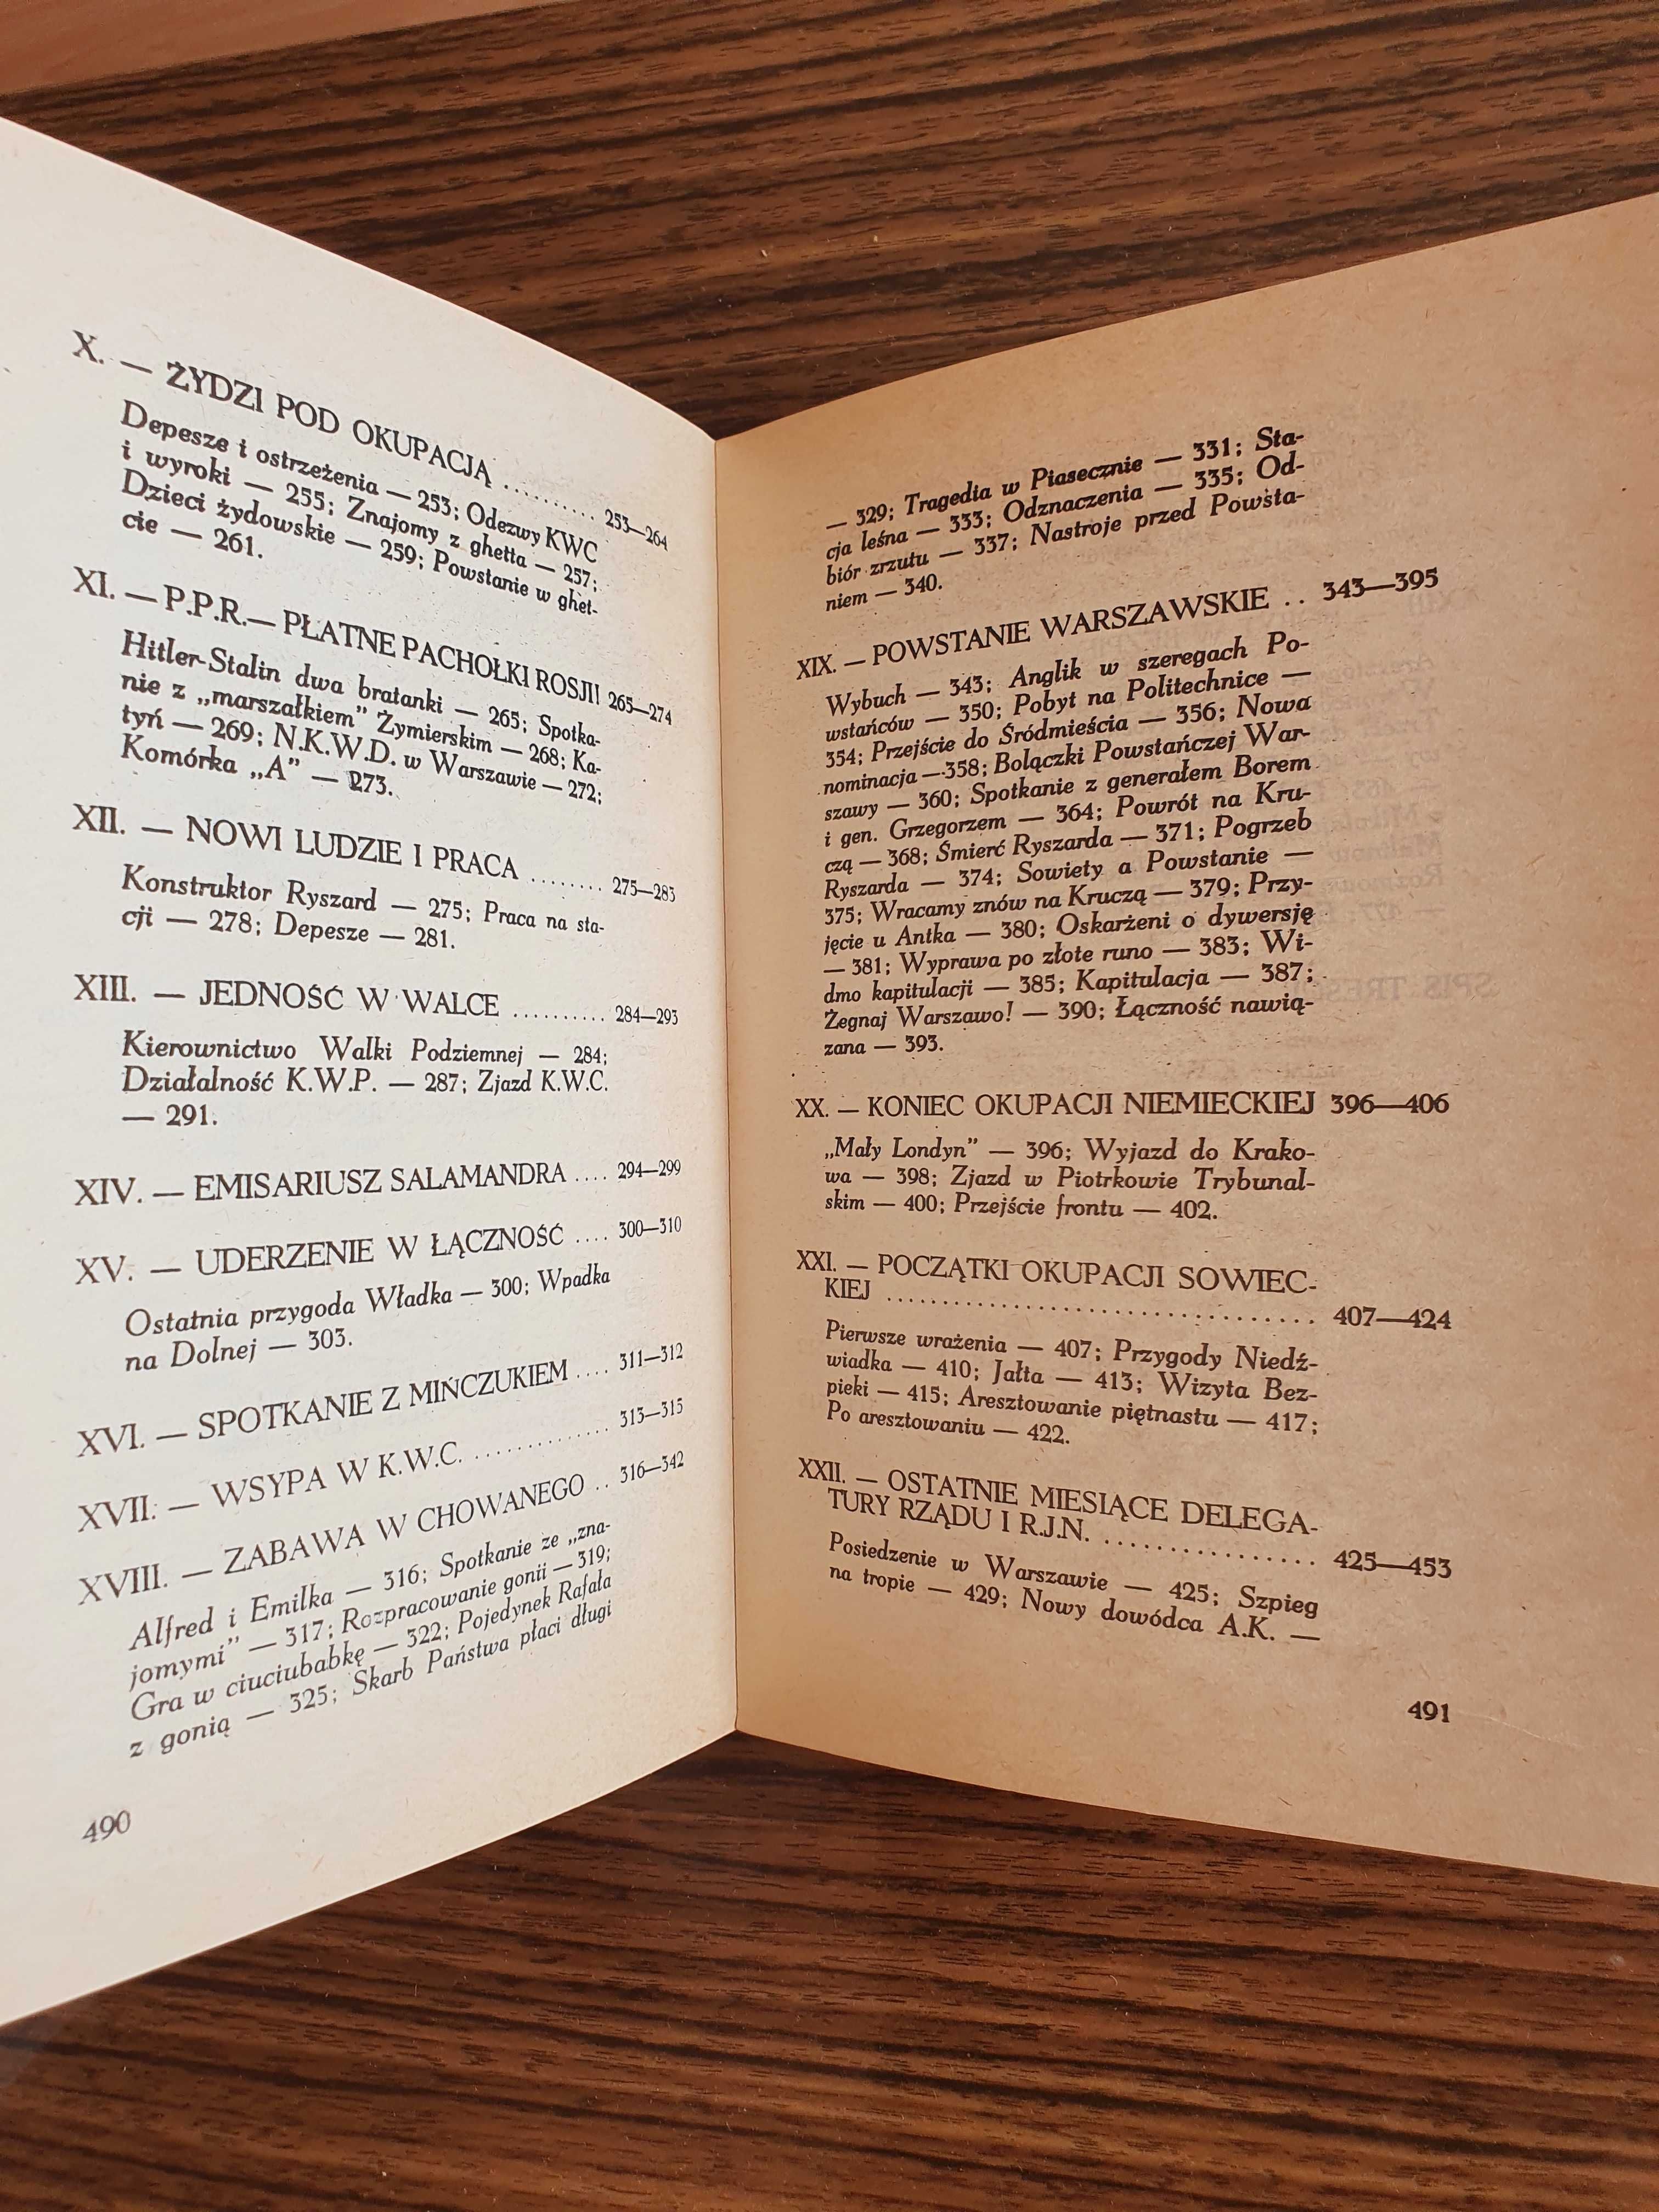 X. — ŻYDZI POD OKUPACJĄ .......... 253—264
Depesze i ostrzeżenia — 253; Odezwy KWC
i wyroki — 255; Znajomy z ghetta — 257;
Dzieci żydowskie — 259; Powstanie w ghet-
cie — 261.
XI. — P.P.R.— PŁATNE PACHOŁKI ROSJI! 265—274
Hitler-Stalin dwa bratanki — 265; Spotka-
nie z „marszałkiem” Żymierskim — 268; Ka-
tyń — 269; N.K.W.D. w Warszawie — 272;
Komórka „A” — 273.
XII. — NOWI LUDZIE I PRACA ........ 275—283
Konstruktor Ryszard — 275; Praca na sta-
cji — 278; Depesze — 281.
XIII. — JEDNOŚĆ W WALCE .......... 284—293
Kierownictwo Walki Podziemnej — 284;
Działalność K.W.P. — 287; Zjazd K.W.C.
— 291.
XIV. — EMISARIUSZ SALAMANDRA .... 294—299
XV. — UDERZENIE W ŁĄCZNOŚĆ .... 300—310
Ostatnia przygoda Władka — 300; Wpadka
na Dolnej — 303.
XVI. — SPOTKANIE Z MIŃCZUKIEM .... 311—312
XVII. — WSYPA W K.W.C. .............. 313—315
XVIII. — ZABAWA W CHOWANEGO .. 316—342
Alfred i Emilka — 316; Spotkanie ze „zna-
jomymi” — 317; Rozpracowanie gonii — 319;
Gra w ciuciubabkę — 322; Pojedynek Rafała
z gonią — 325; Skarb Państwa płaci długi
490
— 329; Tragedia w Piasecznie — 331; Sta-
cja leśna — 333; Odznaczenia — 335; Od-
biór zrzutu — 337; Nastroje przed Powsta-
niem — 340.
XIX. — POWSTANIE WARSZAWSKIE .. 343—395
Wybuch — 343; Anglik w szeregach Po-
wstańców — 350; Pobyt na Politechnice —
354; Przejście do Śródmieścia — 356; Nowa
nominacja — 358; Bolączki Powstańczej War-
szawy — 360; Spotkanie z generałem Borem
i gen. Grzegorzem — 364; Powrót na Kru-
czą — 368; Śmierć Ryszarda — 371; Pogrzeb
Ryszarda — 374; Sowiety a Powstanie —
375; Wracamy znów na Kruczą — 379; Przy-
jęcie u Antka — 380; Oskarżeni o dywersję
— 381; Wyprawa po złote runo — 383; Wi-
dmo kapitulacji — 385; Kapitulacja — 387;
Żegnaj Warszawo! — 390; Łączność nawią-
zana — 393.
XX. — KONIEC OKUPACJI NIEMIECKIEJ 396—406
„Mały Londyn” — 396; Wyjazd do Krako-
wa — 398; Zjazd w Piotrkowie Trybunal-
skim — 400; Przejście frontu — 402.
XXI. — POCZĄTKI OKUPACJI SOWIEC-
KIEJ ................................ 407—424
Pierwsze wrażenia — 407; Przygody Niedź-
wiadka — 410; Jałta — 413; Wizyta Bez-
pieki — 415; Aresztowanie piętnastu — 417;
Po aresztowaniu — 422.
XXII. — OSTATNIE MIESIĄCE DELEGA-
TURY RZĄDU I R.J.N. ................ 425—453
Posiedzenie w Warszawie — 425; Szpieg
na tropie — 429; Nowy dowódca A.K. —
491